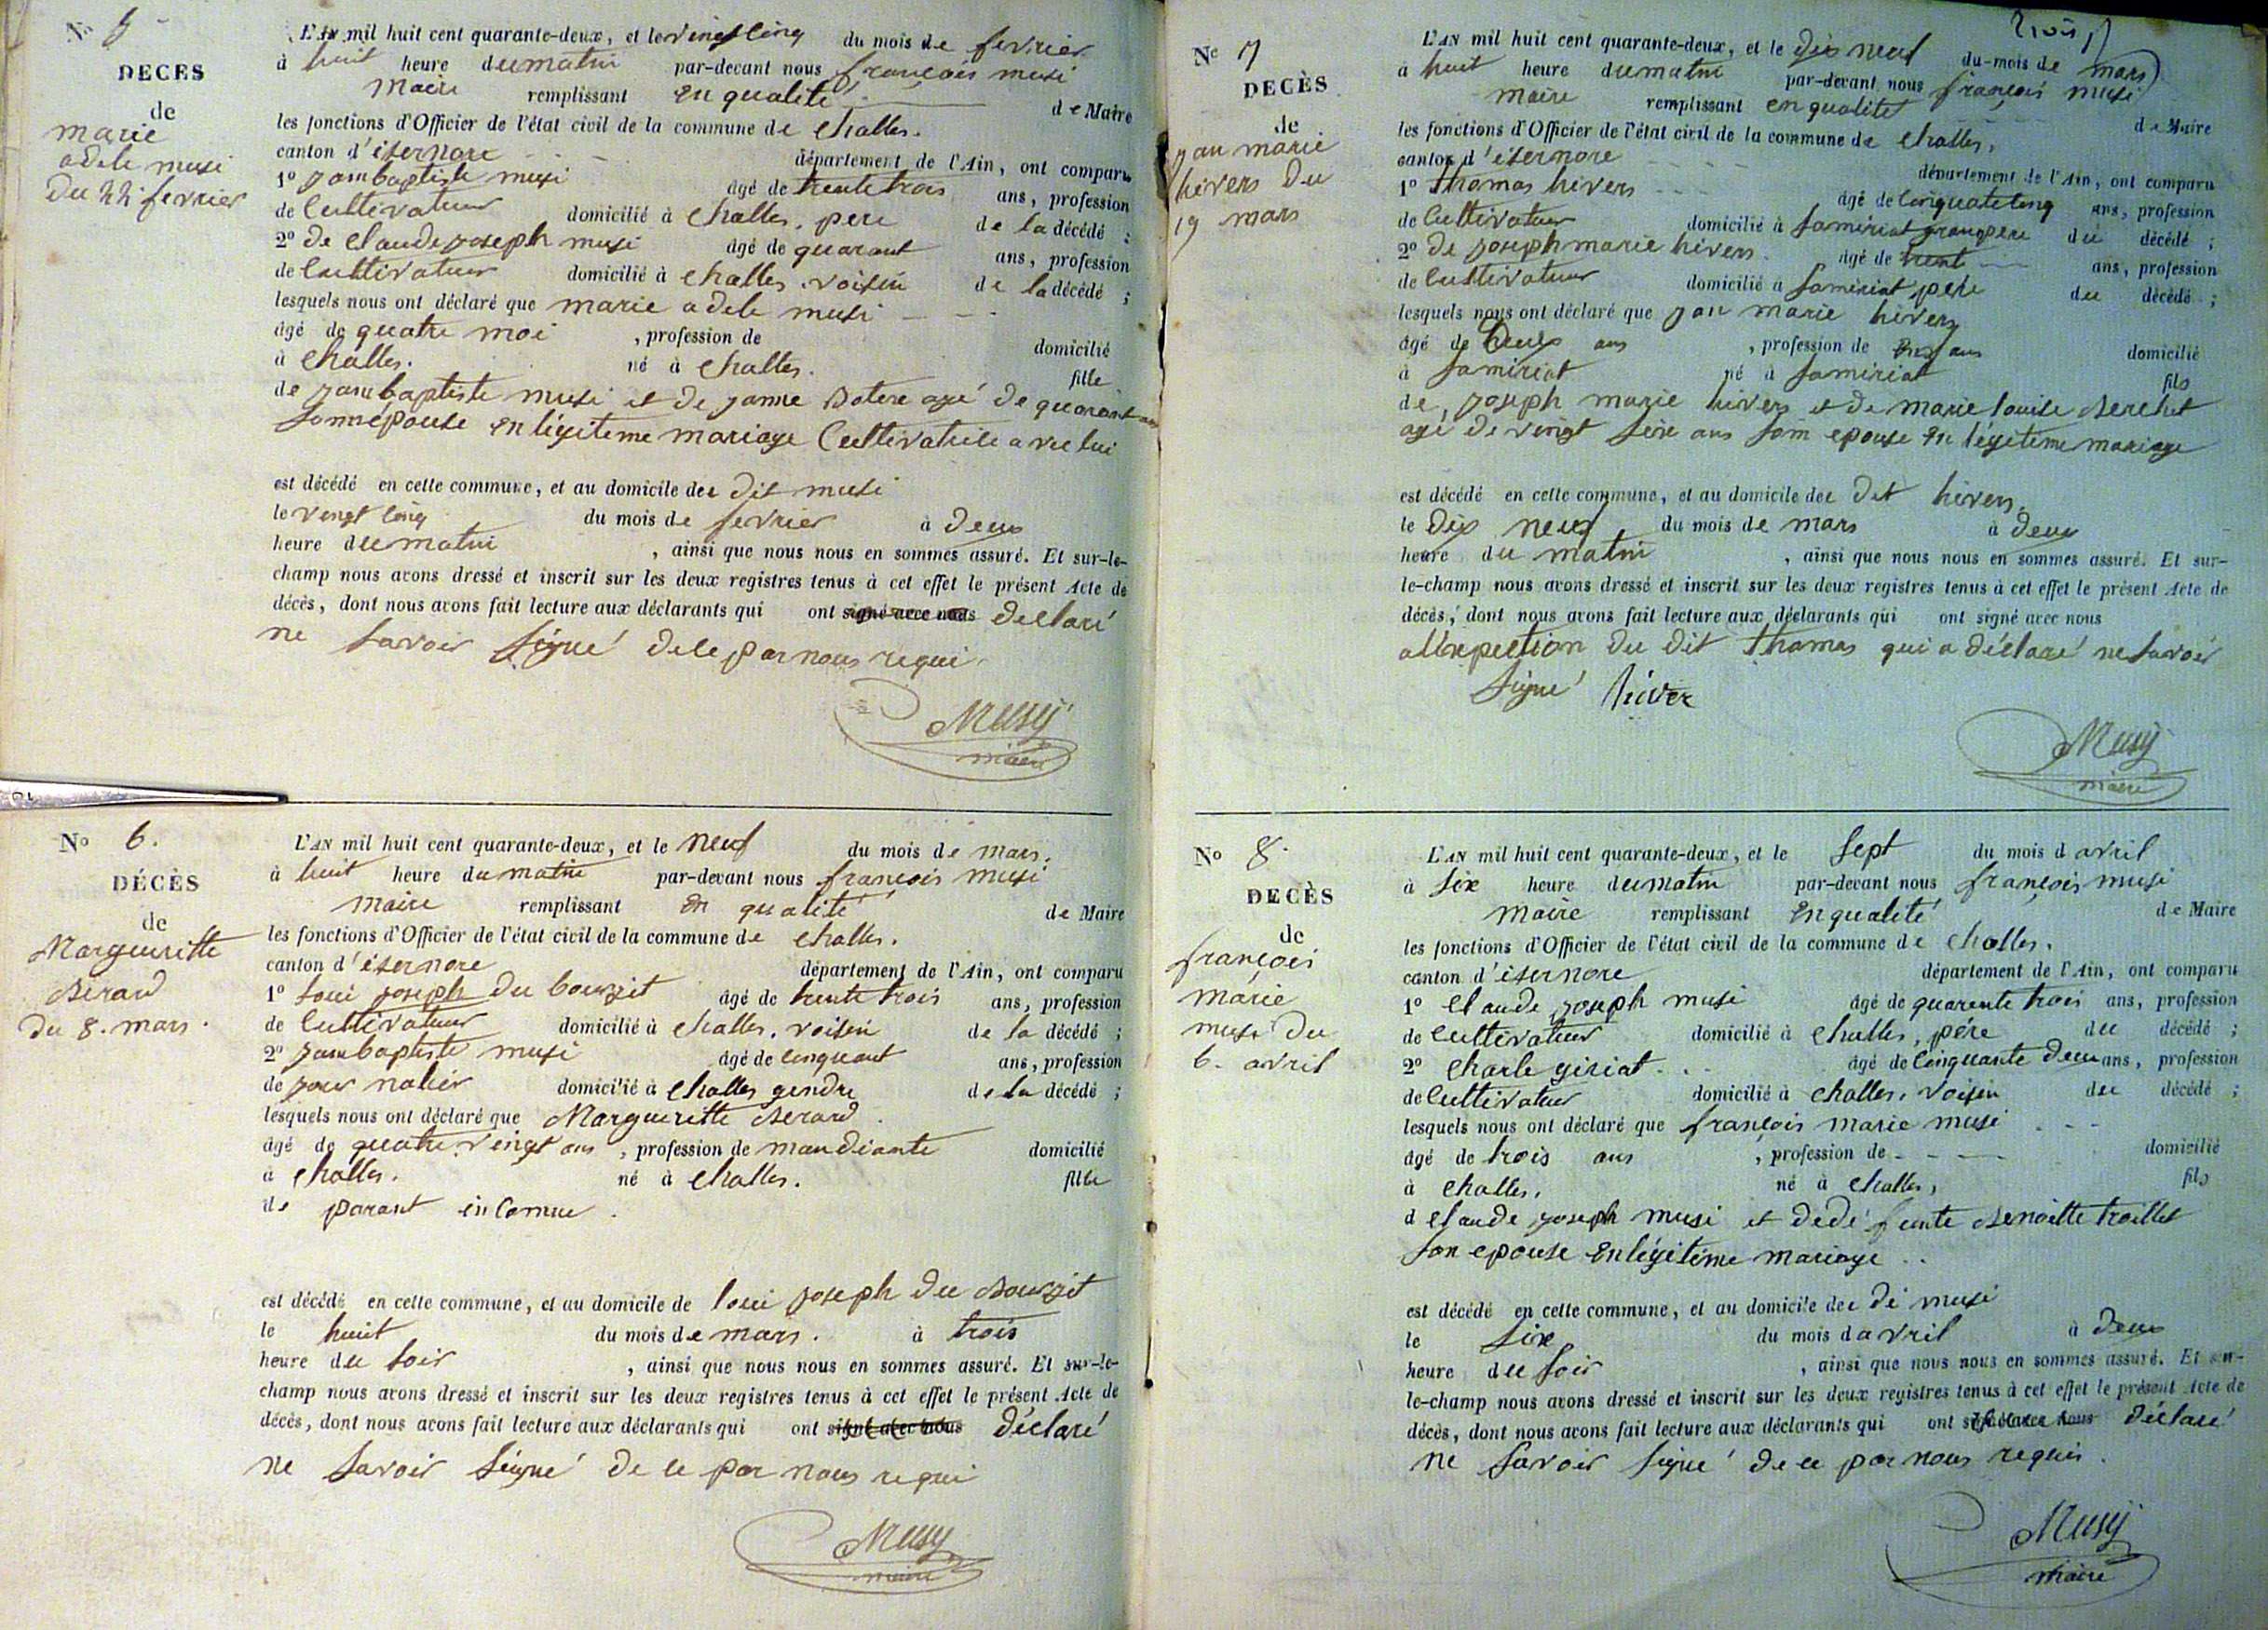 N° 5
DECES
de
marie
adele musi
du 22 fevrier
L'AN mil huit cent quarante-deux, et le vingt cinq du mois de fevrier
à huit heure du matin par-devant nous françois musi
maire remplissant en qualité de Maire
les fonctions d'Officier de l'état civil de la commune de challes.
canton d'isernore département de l'Ain, ont comparu
1° janbaptiste musi âgé de trente trois ans, profession
de cultivateur domicilié à challes, pere de la décédé ;
2° de claude joseph musi âgé de quarant ans, profession
de cultivateur domicilié à challes. voisin de la décédé ;
lesquels nous ont déclaré que marie adele musi
âgé de quatre moi , profession de domicilié
à challes. né à challes. fille
de janbaptiste musi et de janne agé de quarant ans
son épouse en légiteme mariage cultivatrice avec lui
est décédé en cette commune, et au domicile de dit musi
le vingt cinq du mois de fevrier à deux
heure du matin , ainsi que nous nous en sommes assuré. Et sur-le-
champ nous avons dressé et inscrit sur les deux registres tenus à cet effet le présent Acte de
décès, dont nous avons fait lecture aux déclarants qui ont signé avec nous déclaré
ne savoir signé dece par nous requi.
Musy
maire
N° 6.
DÉCÈS
de
Margueritte
Berard
du 8. mars.
L'AN mil huit cent quarante-deux, et le neuf du mois de mars.
à huit heure du matin par-devant nous françois musi
maire remplissant en qualité de Maire
les fonctions d'Officier de l'état civil de la commune de challes.
canton d'isernore département de l'Ain, ont comparu
1° loui joseph du bouzzit âgé de trente trois ans, profession
de cultivateur domicilié à challes, voisin de la décédé ;
2° janbaptiste musi âgé de cinquant ans, profession
de jour nalier domicilié à challes gendre de la décédé ;
lesquels nous ont déclaré que Margueritte Berard
âgé de quatre vingt ans , profession de mandiante domicilié
à challes. né à challes. fille
de parant inconnu.
est décédé en cette commune, et au domicile de loui joseph du Bouzzit
le huit du mois de mars. à trois
heure du soir , ainsi que nous nous en sommes assuré. Et sur-le-
champ nous avons dressé et inscrit sur les deux registres tenus à cet effet le présent Acte de
décès, dont nous avons fait lecture aux déclarants qui ont signé avec nous déclaré
ne savoir signé de ce par nous requi
Musy
maire
trois
N° 7
DECÈS
de
jan marie
hivers du
19 mars
L'AN mil huit cent quarante-deux, et le dix neuf du mois de mars
à huit heure du matin par-devant nous françois musi
maire remplissant en qualité de Maire
les fonctions d'Officier de l'état civil de la commune de challes,
canton d'isernore département de l'Ain, ont comparu
1° thomas hivers âgé de cinquate cinq ans, profession
de cultivateur domicilié à samiriat granpere du décédé ;
2° de joseph marie hivers. âgé de trent ans, profession
de cultivateur domicilié à samiriat pere du décédé ;
lesquels nous ont déclaré que jan marie hivers
âgé de deux ans , profession de ans domicilié
à samiriat né à samiriat fils
de, joseph marie hivers et de marie louise Berchet
agé de vingt seix ans som epouse en légiteme mariage
est décédé en cette commune, et au domicile de dit hivers,
le dix neuf du mois de mars à deux
heure du matin , ainsi que nous nous en sommes assuré. Et sur-
le-champ nous avons dressé et inscrit sur les deux registres tenus à cet effet le présent Acte de
décès, dont nous avons fait lecture aux déclarants qui ont signé avec nous
du dit thomas qui a déclaré ne savoir
signé hiver
Musy
maire
N° 8.
DECÈS
de
françois
marie
musi du
6. avril
L'AN mil huit cent quarante-deux, et le sept du mois d avril
à six heure du matin par-devant nous françois musi
maire remplissant en qualité de Maire
les fonctions d'Officier de l'état civil de la commune de challes.
canton d'isernore département de l'Ain, ont comparu
1° claude joseph musi âgé de quarente trois ans, profession
de cultivateur domicilié à challes, pére du décédé ;
2° charle giriat. âgé de cinquante deux ans, profession
de cultivateur domicilié à challes, voisin du décédé ;
lesquels nous ont déclaré que françois marie musi
âgé de trois ans , profession de domicilié
à challes, né à challes, fils
d claude joseph musi et dedé funte Benoitte troillet
son epouse en légiteme mariage
est décédé en cette commune, et au domicile de di musi
le six du mois d avril à deux
heure du soir , ainsi que nous nous en sommes assuré. Et sur-
le-champ nous avons dressé et inscrit sur les deux registres tenus à cet effet le présent Acte de
décès, dont nous avons fait lecture aux déclarants qui ont signé avec nous déclaré
ne savoir signé de ce par nous requis.
Musy
maire